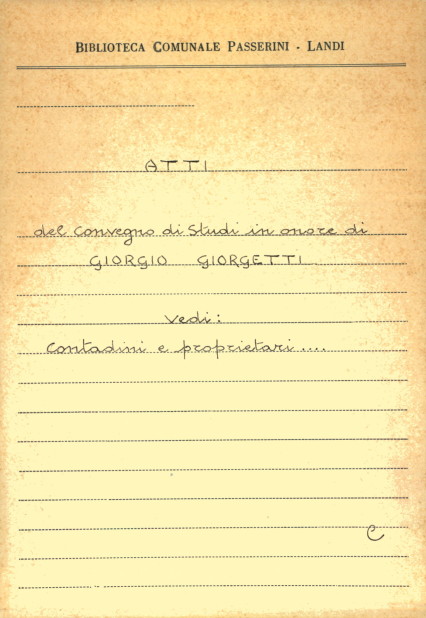 BIBLIOTECA COMUNALE PASSERINI - LANDI
ATTI
del Convegno di Studi in onore di
GIORGIO GIORGETTI
Vedi:
Contadini e proprietari....
C